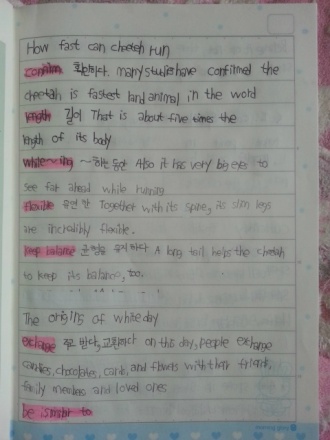 How fast can cheetah run
confilm 확인하다. many studies have confirmed the
cheetah is fastest land animal in the word
length 길이 That is about five times the
length of its body
while ~ing ~하는 동안 Also it has very big eyes to
see far ahead while running
flexible 유연한 Together with its spine, its slim legs
are incredibly flexible.
keep balance 균형을 유지하다. A long tail helps the cheetah
to keep its balance, too.
The origins of white day
exchange 주고 받다, 교환하다 on this day, people exchange
candies, chocolates, cards, and flowers with their friends,
family members and loved ones
be similar to